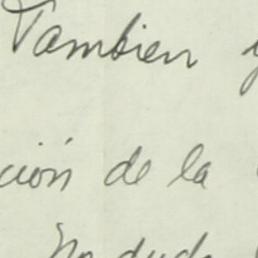 Tambien y
ción de la
No dudo